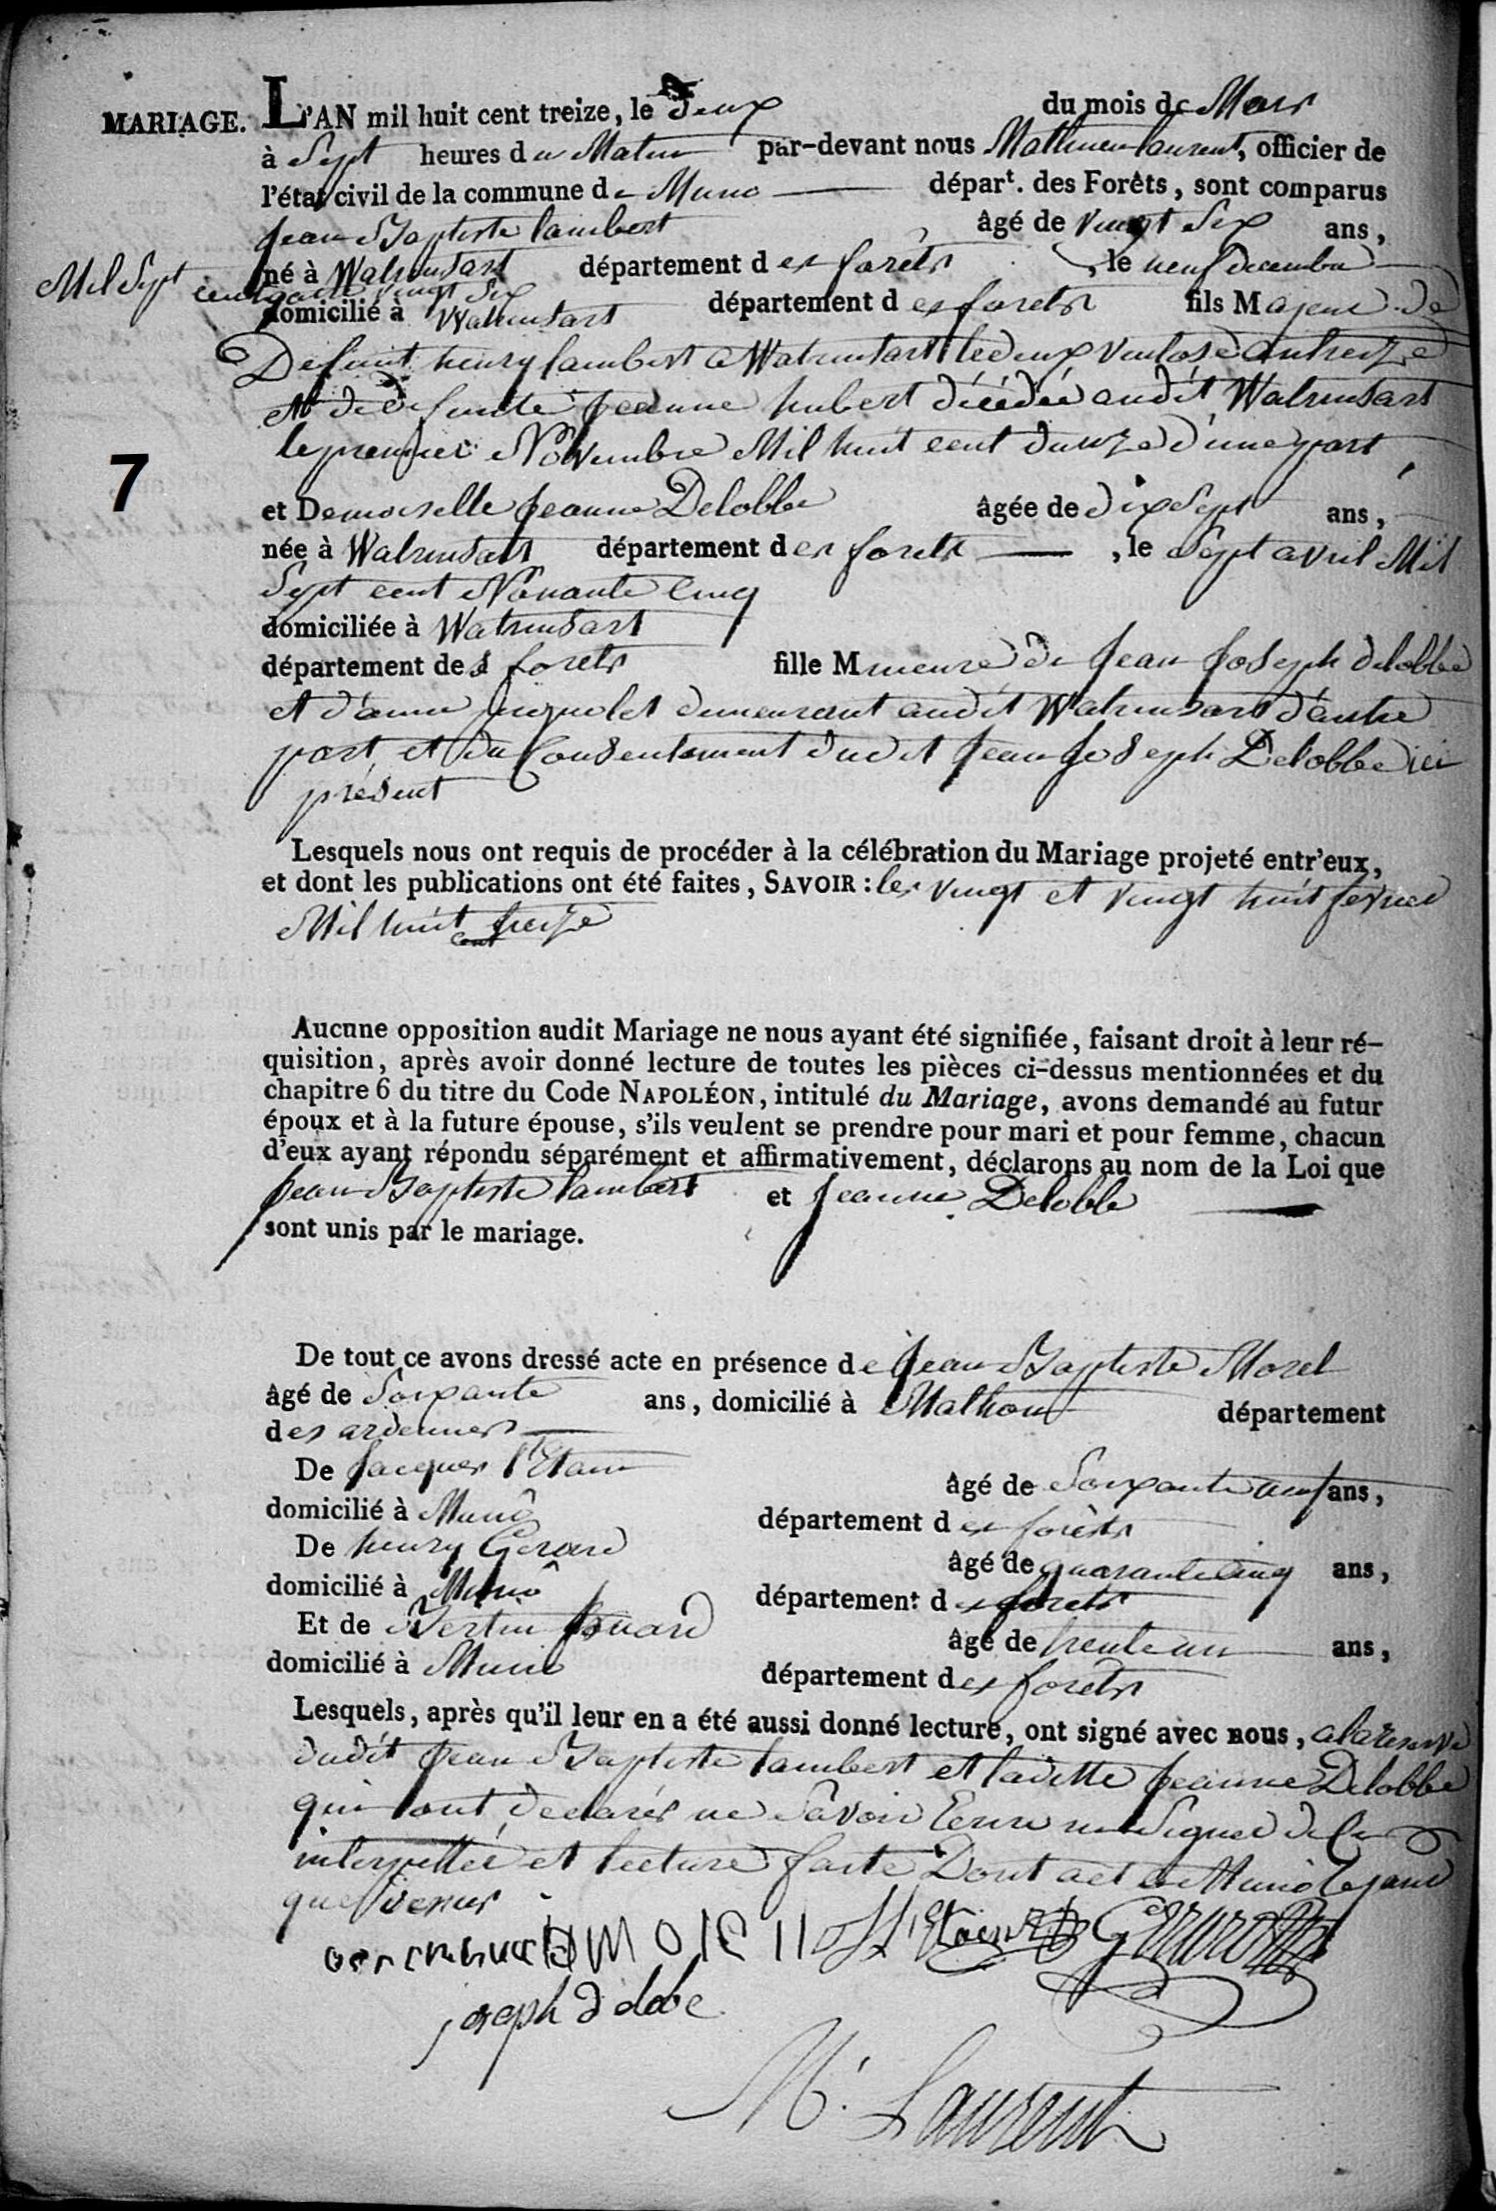 MARIAGE. L'AN mil huit cent treize, le deux du mois de Mars
à Sept heures du Matin par-devant nous Mathieu laurent, officier de
l'état civil de la commune de Muno départ. des Forêts, sont comparus
jean Baptiste lambert âgé de vingt Six ans,
né à Watrinsart département des forêts, le neuf decembre
Mil Sept cent quatre vingt Six
domicilié à Watrinsart département des forets fils Majeur de
Defunt henry lambert a Watrinsart le deux ventose an treize
et de defunte jeanne hubert décédée audit Watrinsart
le premier Novembre Mil huit cent douze d'une part
7
et Demoiselle jeanne Delobbe âgée de dix Sept ans,
née à Watrinsart département des forets, le Sept avril Mil
Sept cent Nonante Cinq
domiciliée à Watrinsart
département des forets fille Mineure de jean joseph delobbe
et d'anne demeurant audit Watrinsart d'autre
part et du Consentement dudit jean joseph Delobbe ici
présent
Lesquels nous ont requis de procéder à la célébration du Mariage projeté entr'eux,
et dont les publications ont été faites, SAVOIR : les vingt et vingt huit fevrier
Mil huit cent treize
Aucune opposition audit Mariage ne nous ayant été signifiée, faisant droit à leur ré-
quisition, après avoir donné lecture de toutes les pièces ci-dessus mentionnées et du
chapitre 6 du titre du Code NAPOLÉON, intitulé du Mariage, avons demandé au futur
époux et à la future épouse, s'ils veulent se prendre pour mari et pour femme, chacun
d'eux ayant répondu séparément et affirmativement, déclarons au nom de la Loi que
jean Baptiste lambert et jeanne Delobbe
sont unis par le mariage.
De tout ce avons dressé acte en présence de jean Baptiste Morel
âgé de Soixante ans, domicilié à Malhon département
des ardennes
De jacques l'Etain âgé de Soixante neuf ans,
domicilié à Munô département des forêts
De henry Gerard âgé de quarante cinq ans,
domicilié à Munô département des forets
Et de Bertin jouard âgé de trente un ans,
domicilié à Muno département des forêts
Lesquels, après qu'il leur en a été aussi donné lecture, ont signé avec nous, a la reserve
dudit jean Baptiste lambert et ladite jeanne Delobbe
qui ont declarés ne Savoir Ecrire ni Signer de ce
interpellée et lecture faite Dont act a Muno les jour
que dessus
l'Etain Gerard
joseph delobe
M. Laurent